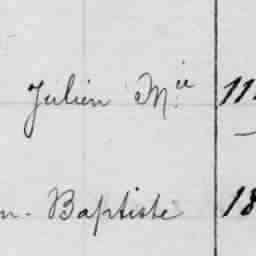 Julien M.ie 11
n. Baptiste 18